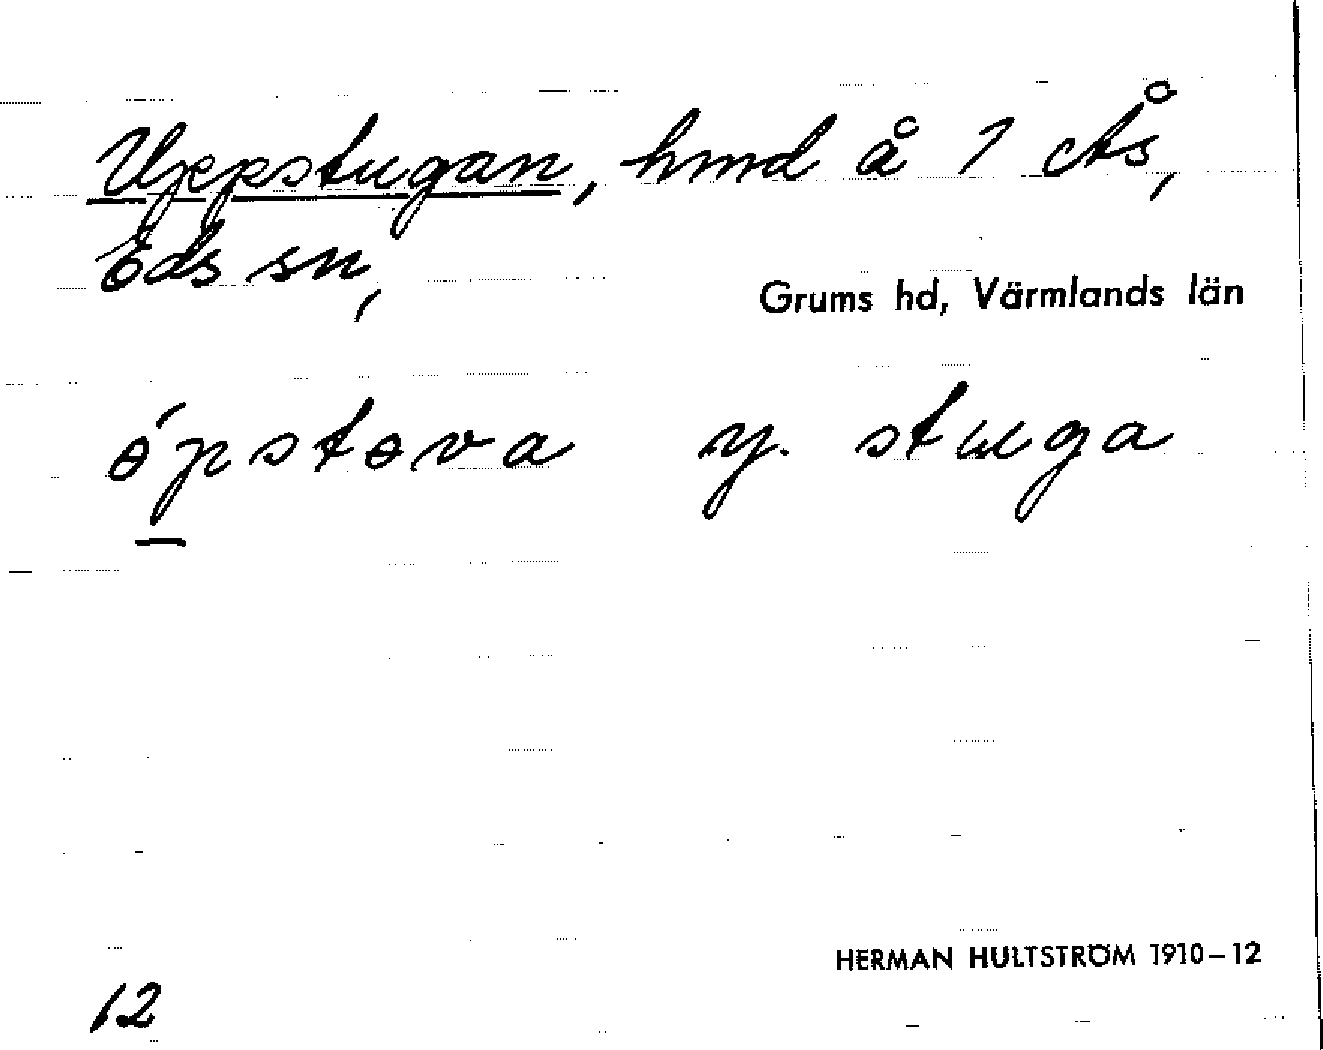 Uppstugan, hmd å 1 Ås,
Eds sn,
Grums hd, Värmlands län
ɵ́pstɵva y. stuga
HERMAN HULTSTRÖM 1910–12
12